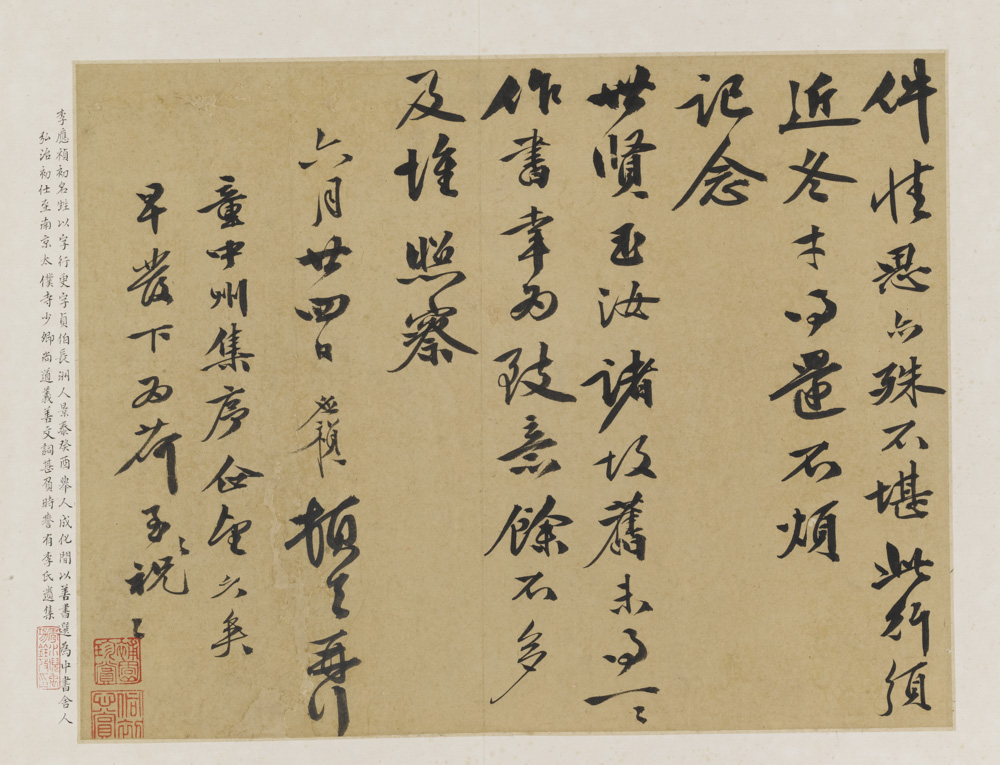 件情思亦殊不堪此行須
近冬才得還不煩
記念
世賢玉汝諸故舊未得一一
作書幸為致意餘不多
及惟照察
六月廿四日應禎頓首再行
童中州集序
早發下為荷至祝
李應禎初名甡以字行更字貞伯長洲人景泰癸酉舉人成化間以善書選為中書舍人
弘治初仕至南京太僕寺少卿尚道義善文詞甚有時譽有李氏遺集